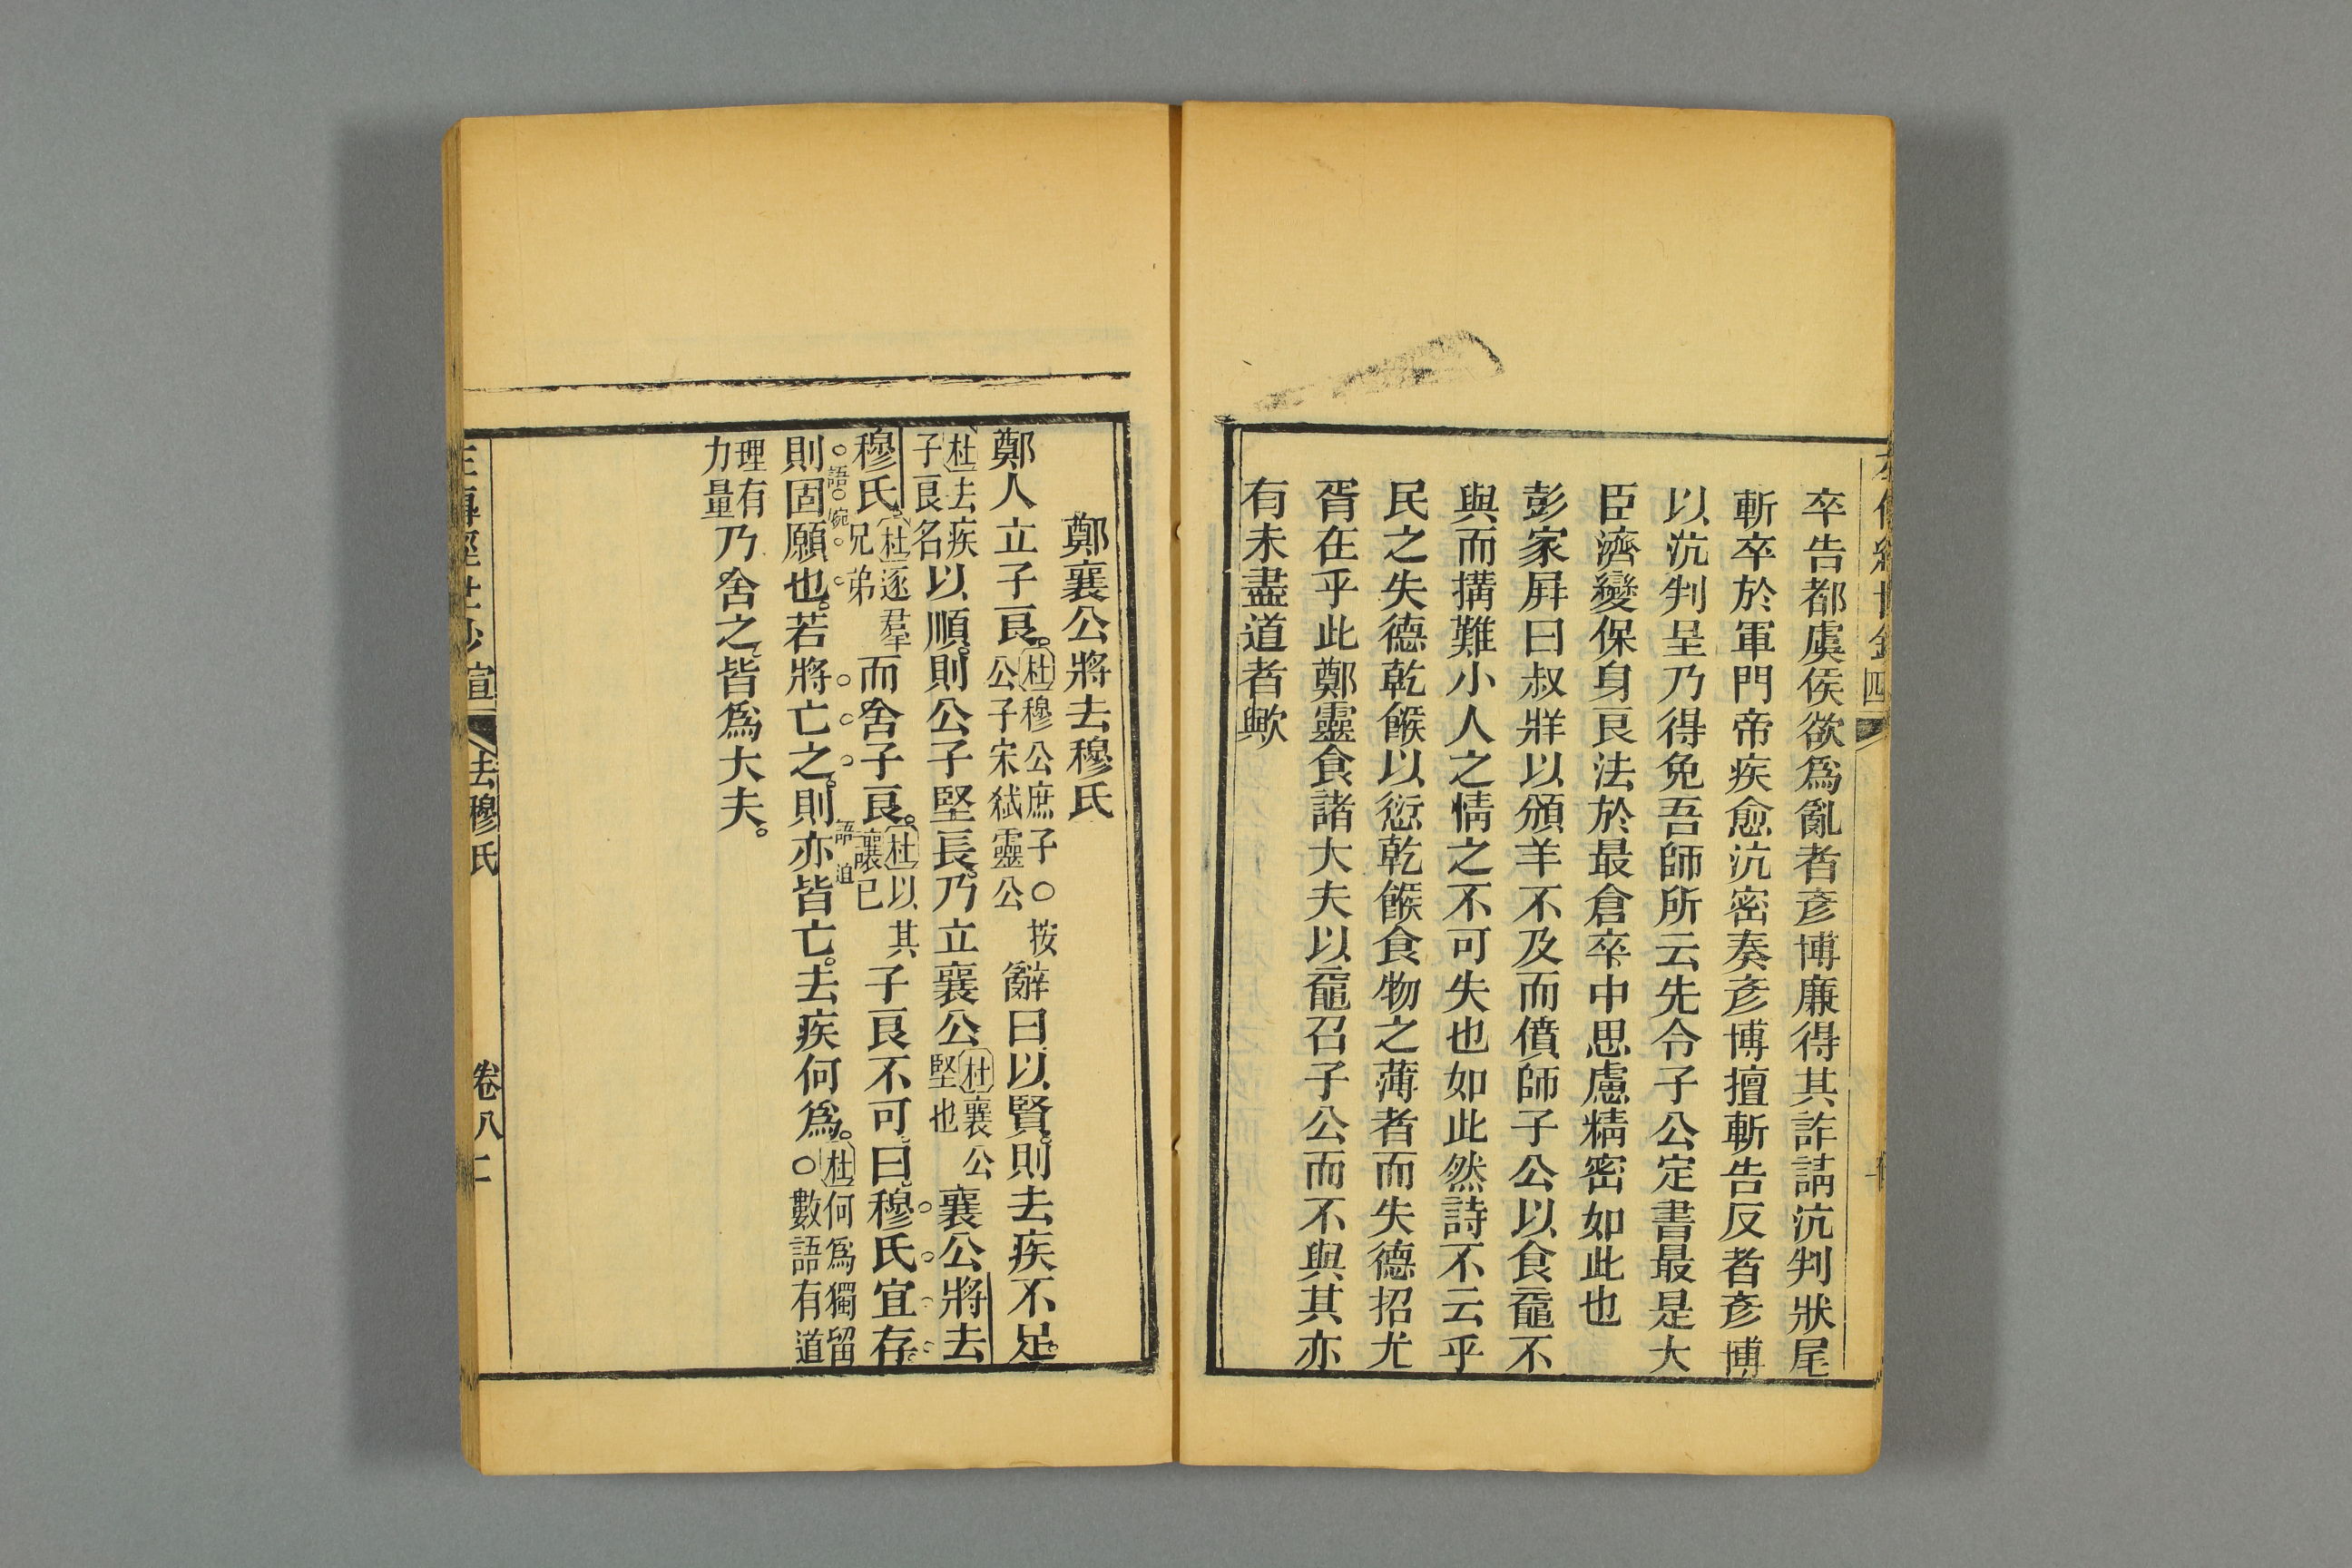 卒告都虞侯欲爲亂者彥博廉得其詐請沆判狀尾
斬卒於軍門帝疾愈沆密奏彥博擅斬告反者彥博
以沆判呈乃得免吾師所云先令子公定書最是大
臣濟變保身良法於最倉卒中思慮精密如此也
彭家屛曰叔牂以頒羊不及而僨師子公以食黿不
與而搆難小人之情之不可失也如此然詩不云乎
民之失德乾餱以愆乾餱食物之薄者而失德招尤
胥在乎此鄭靈食諸大夫以黿召子公而不與其亦
有未盡道者歟
鄭襄公將去穆氏
鄭人立子良。杜穆公庶子○按公子宋弑靈公辭曰以賢則去疾不足。
杜去疾子良名以順則公子堅長乃立襄公杜襄公堅也襄公將去
穆氏杜逐羣兄弟而舍子良。杜以其讓己子良不可曰穆氏宜存
則固願也若將亡之則亦皆亡。去疾何爲。杜何爲獨留○數語有道
理有力量乃舍之皆爲大夫。
去穆氏
卷八